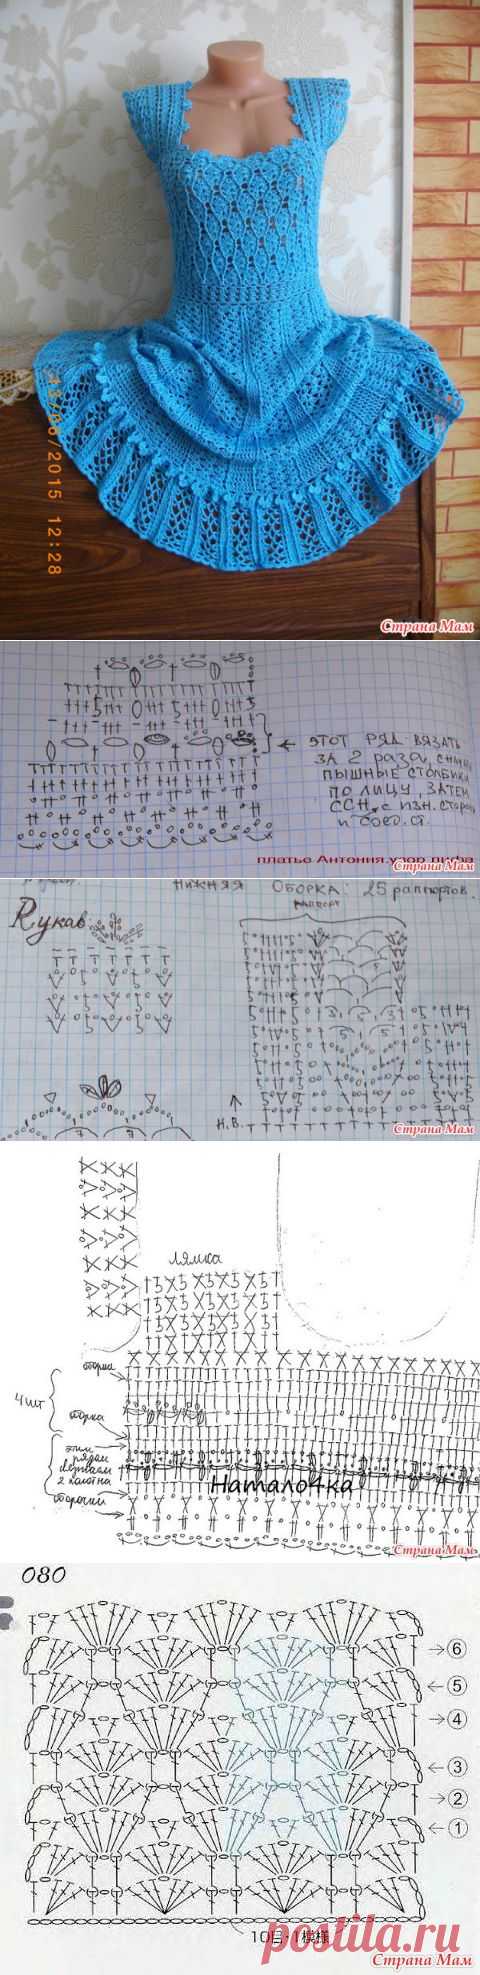 13/06/2015 12:28
Страна Мам
← ЭТОТ РЯД ВЯЗАТЬ
ЗА 2 РАЗА, СНАЧ
ПЫШНЫЕ СТОЛБИКИ
ПО ЛИЦУ, ЗАТЕМ
ССН с ИЗН. СТОРОН
и соед. ст.
платье Антония.узор лифа
Страна Мам
НИЖНЯЯ ОБОРКА: 25 раппортов.
Рукав
раппорт
Н.В.
Страна Мам
лямка
4 шт
этим
рядом
2 полотна
Натало4ка
Страна Мам
080
→ 6
← 5
→ 4
← 3
→ 2
← 1
10目・1模様
postila.ru
Страна Мам